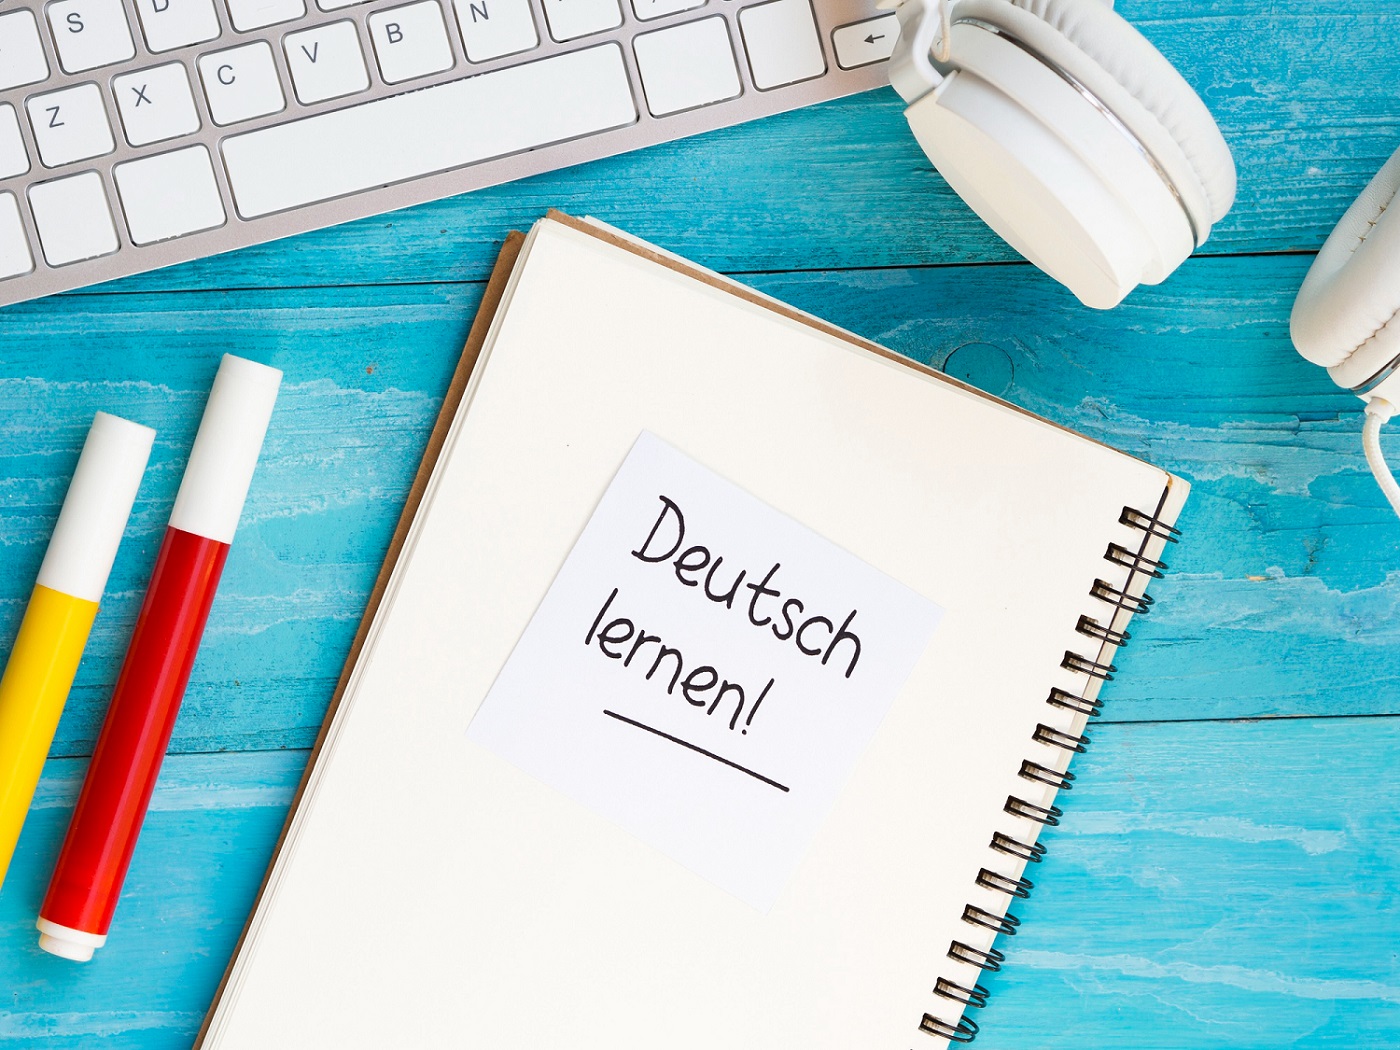 S D
Z X C V B N
←
Deutsch
lernen!